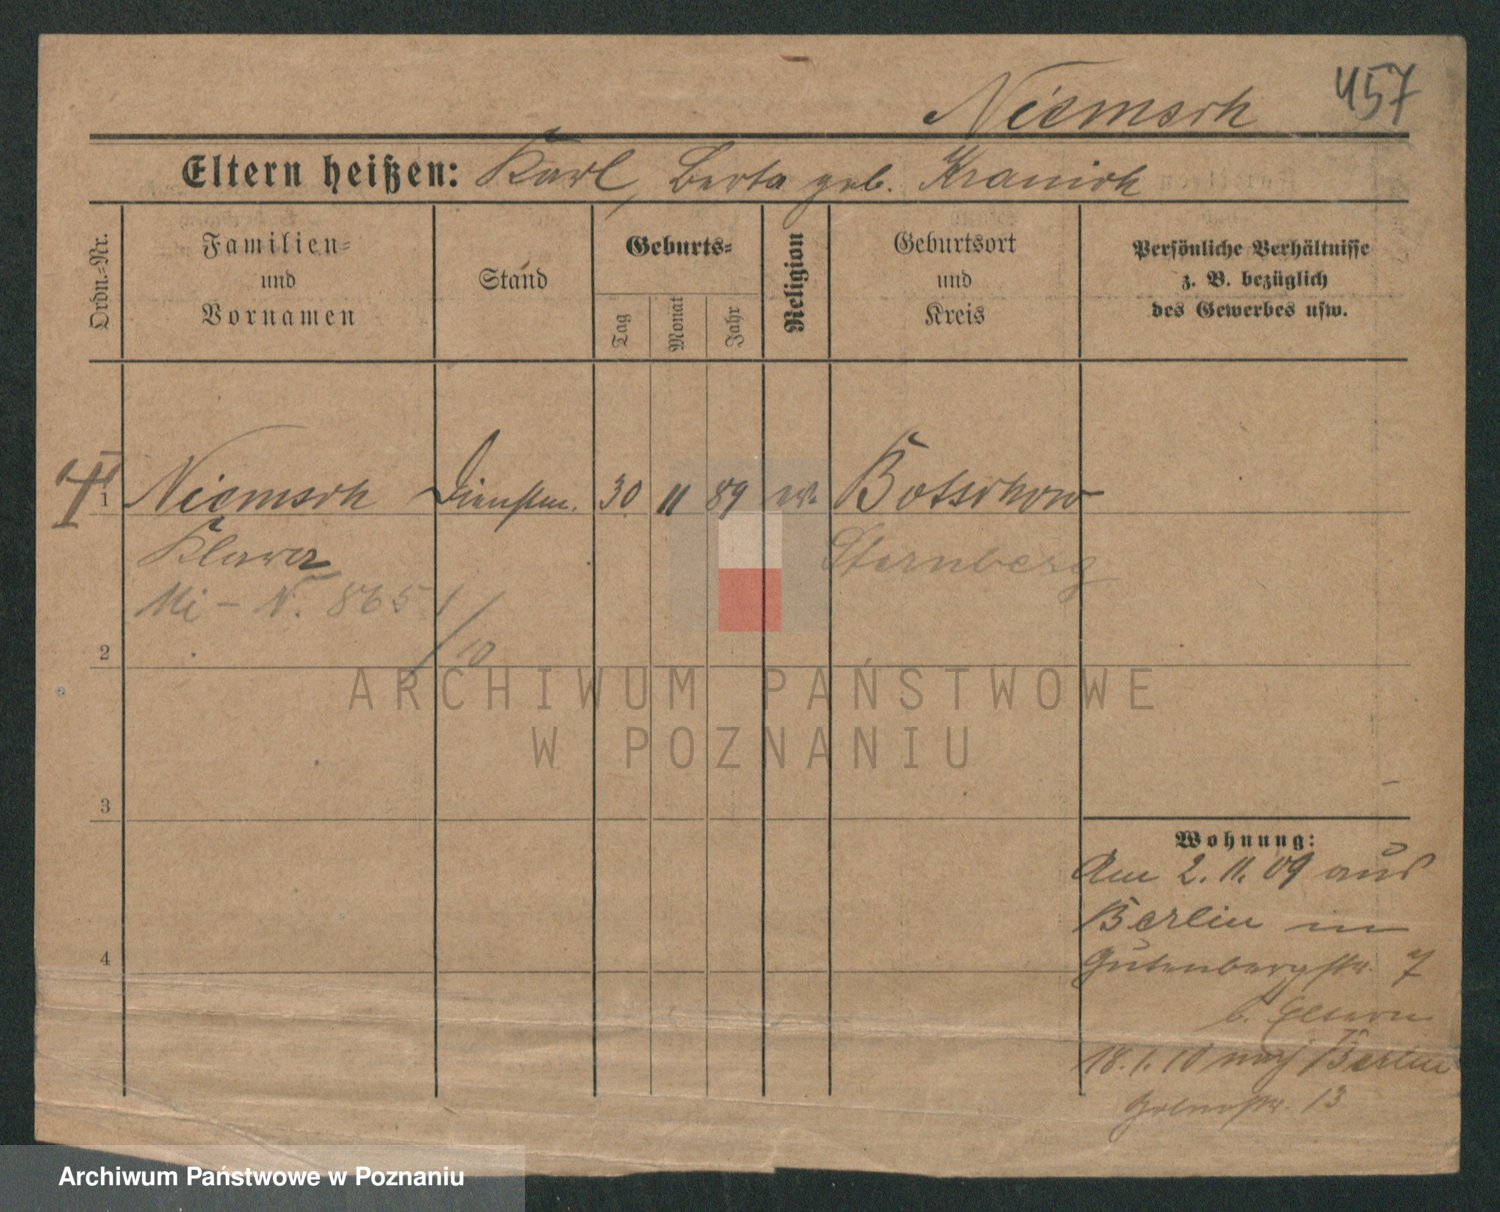 457
Niemsch
Eltern heißen: Karl, Berta geb. Kranich
Ordn.=Nr.
Familien=
und
Vornamen
Stand
Geburts=
Tag
Monat
Jahr
Religion
Geburtsort
und
Kreis
Persönliche Verhältnisse
z. B. bezüglich
des Gewerbes usw.
1 Niemsch Dienstm. 30 11 89 ev. Botschow
Klara Sternberg
Mi - N. 865
/10
2
ARCHIWUM PAŃSTWOWE
W POZNANIU
3
Wohnung:
Am 2. 11. 09 aus
Berlin in
4
Gutenbergstr. 7
b. Eltern
18. 1. 10 nach Berlin
13
Archiwum Państwowe w Poznaniu